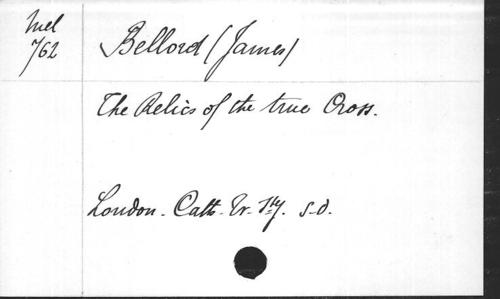 Mel
762
Bellord (James)
The Relics of the true Cross.
London. Cath. Tr. Sty. s.d.